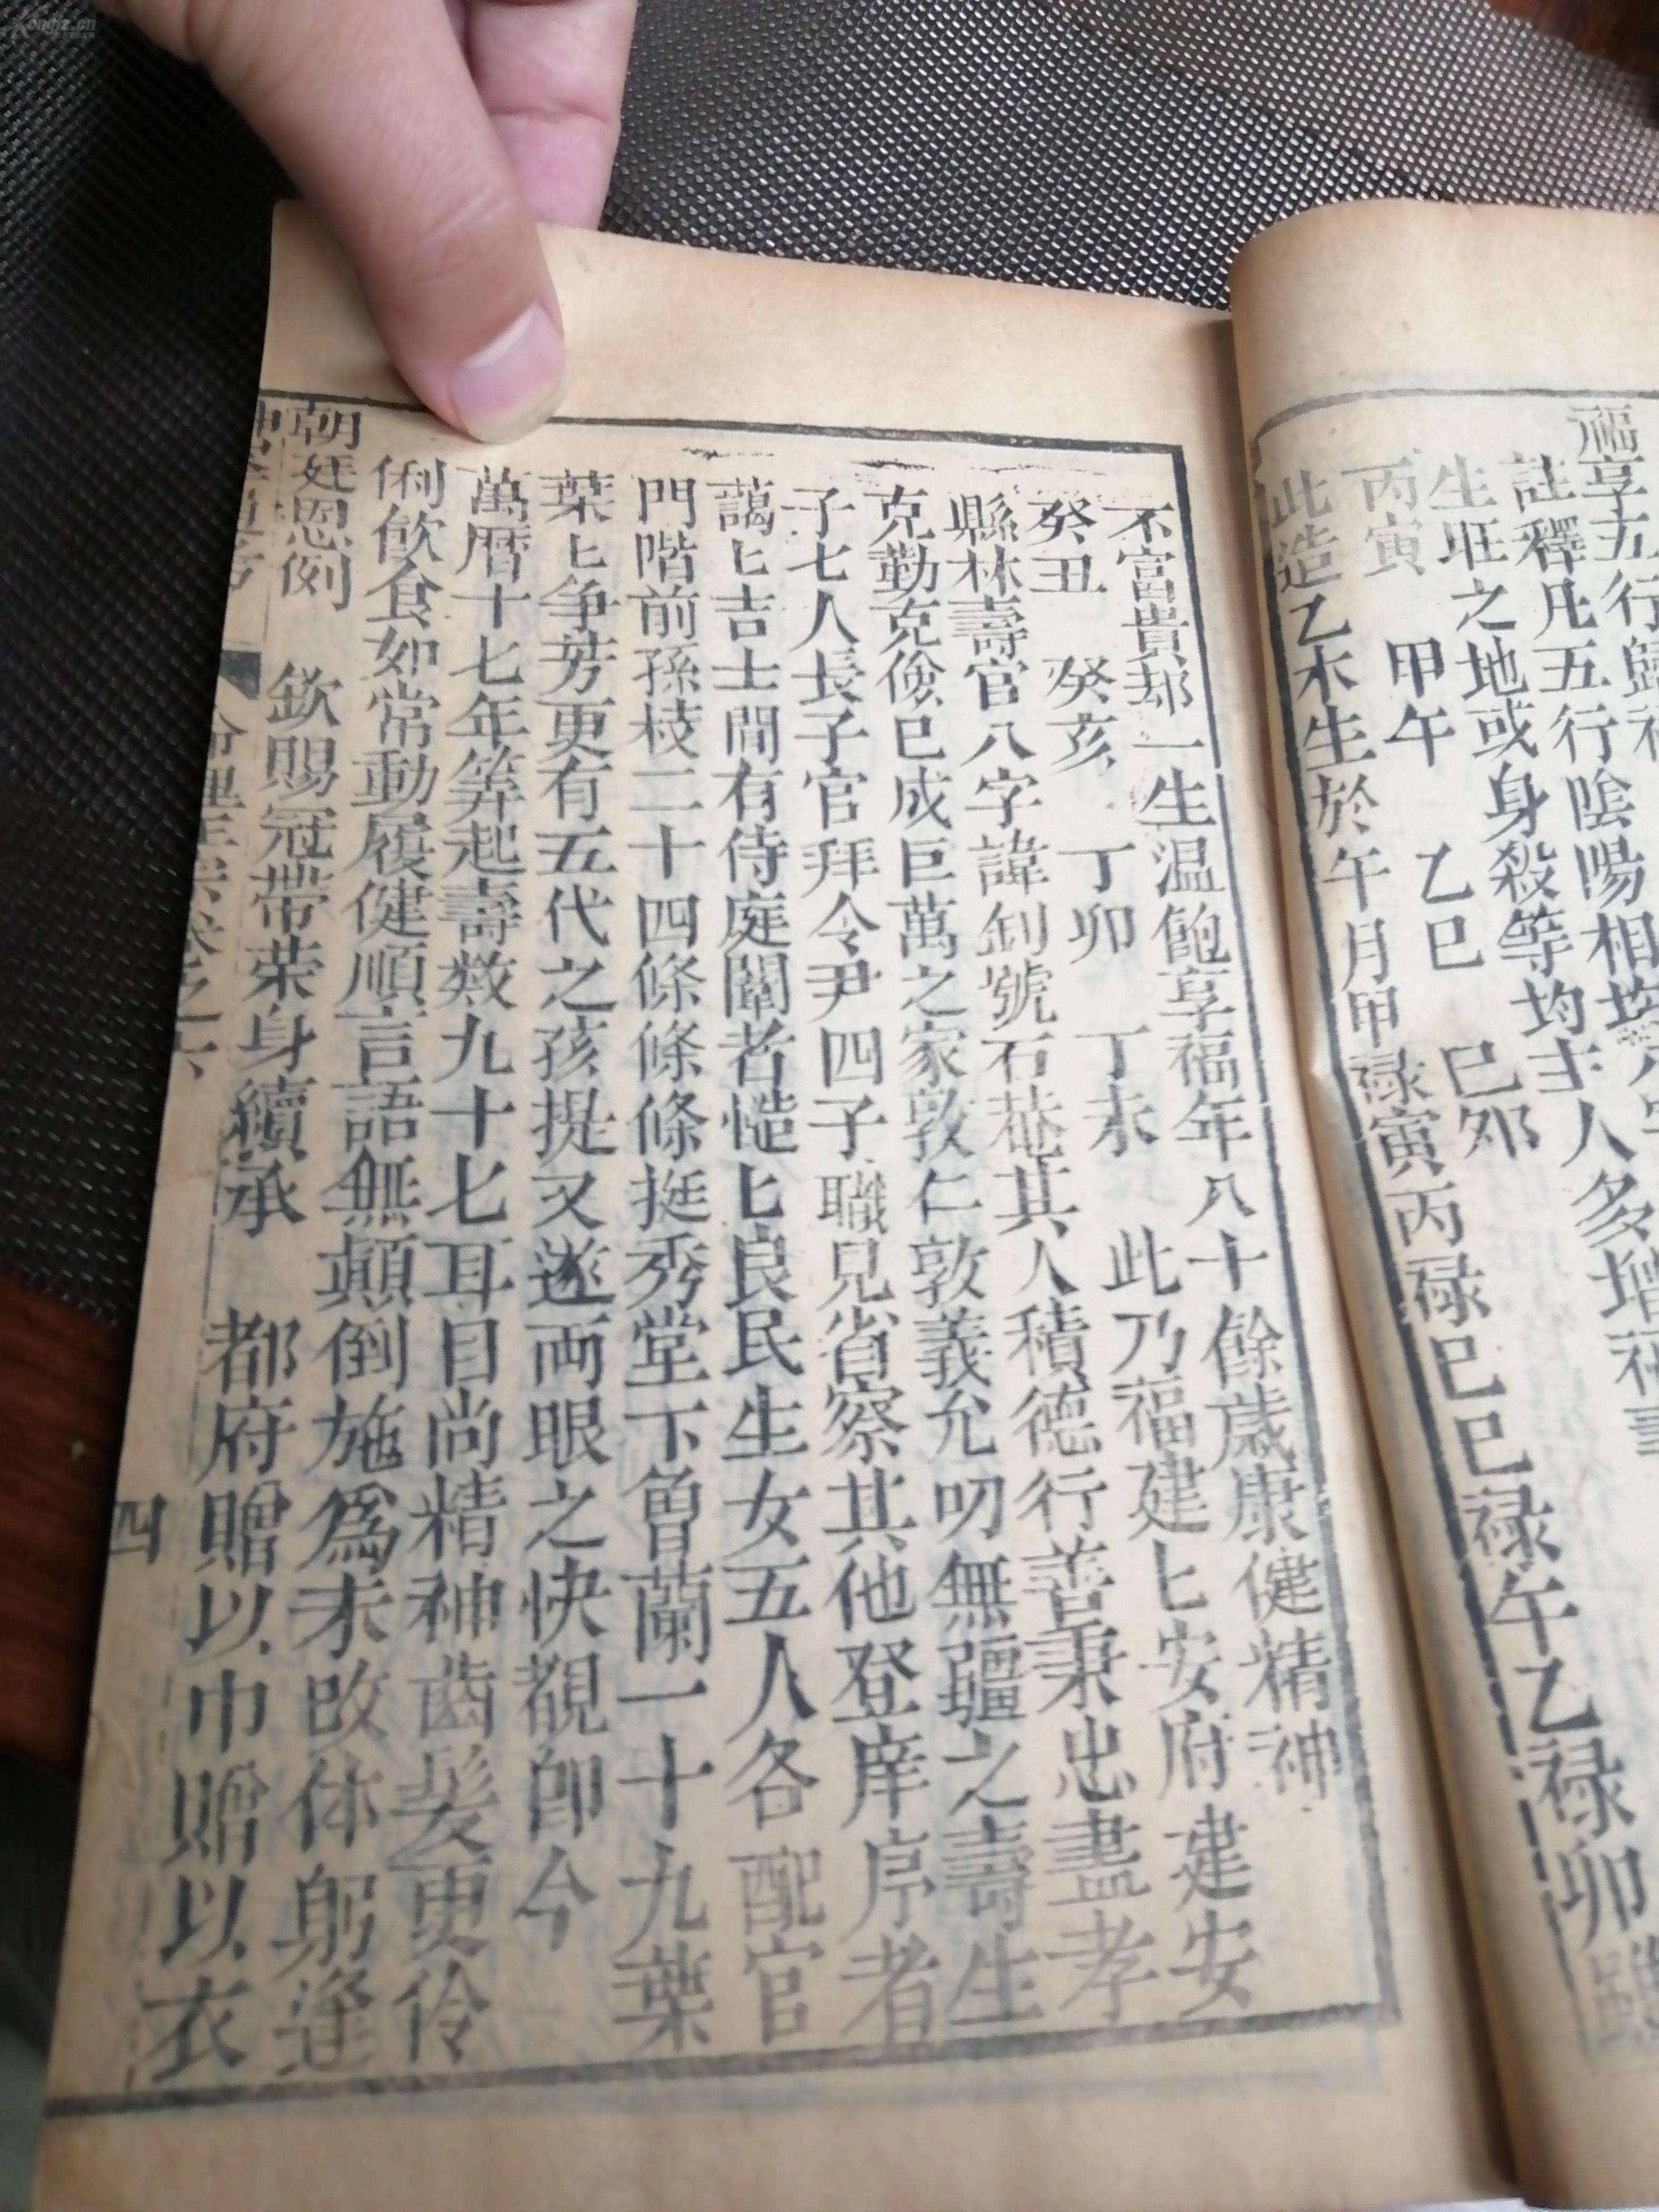 福享五行歸祿
註釋凡五行陰陽相均
生旺之地或身殺等均主人多增福壽
丙寅　甲午　乙巳　己卯
此造乙木生於午月甲祿寅丙祿巳巳祿午乙祿卯
不富貴却一生温飽享福年八十餘歲康健精神
癸丑　癸亥　丁卯　丁未　此乃福建匕安府建安
縣林壽官八字諱釗號石菴其人積德行善秉忠盡孝
克勤克儉已成巨萬之家敦仁敦義允叨無疆之壽生
子七人長子官拜令尹四子職兄省察其他登庠序者
藹匕吉士間有侍庭闈者慥匕良民生女五人各配官
門階前孫枝二十四條條條挺秀堂下曾蘭一十九葉
葉匕爭芳更有五代之孩提又遂兩眼之快覩卽今
萬曆十七年筭起壽数九十七耳目尚精神齒髮更伶
俐飲食如常動履健順言語無顛倒施爲未改体躬逢
朝廷恩例　欽賜冠帶荣身續承　都府贈以巾贈以衣
命理正宗卷之六
四